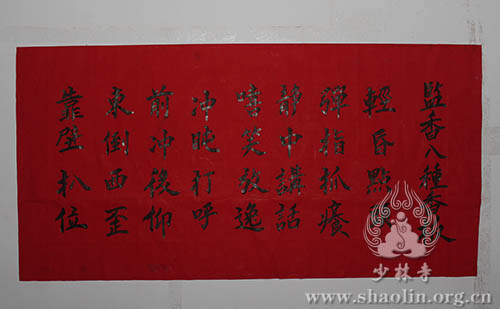 監香八種香板
輕昏點
彈指抓癢
靜中講話
嘻笑放逸
冲盹打呼
前冲後仰
東倒西歪
靠壁扒位
少林寺
www.shaolin.org.cn